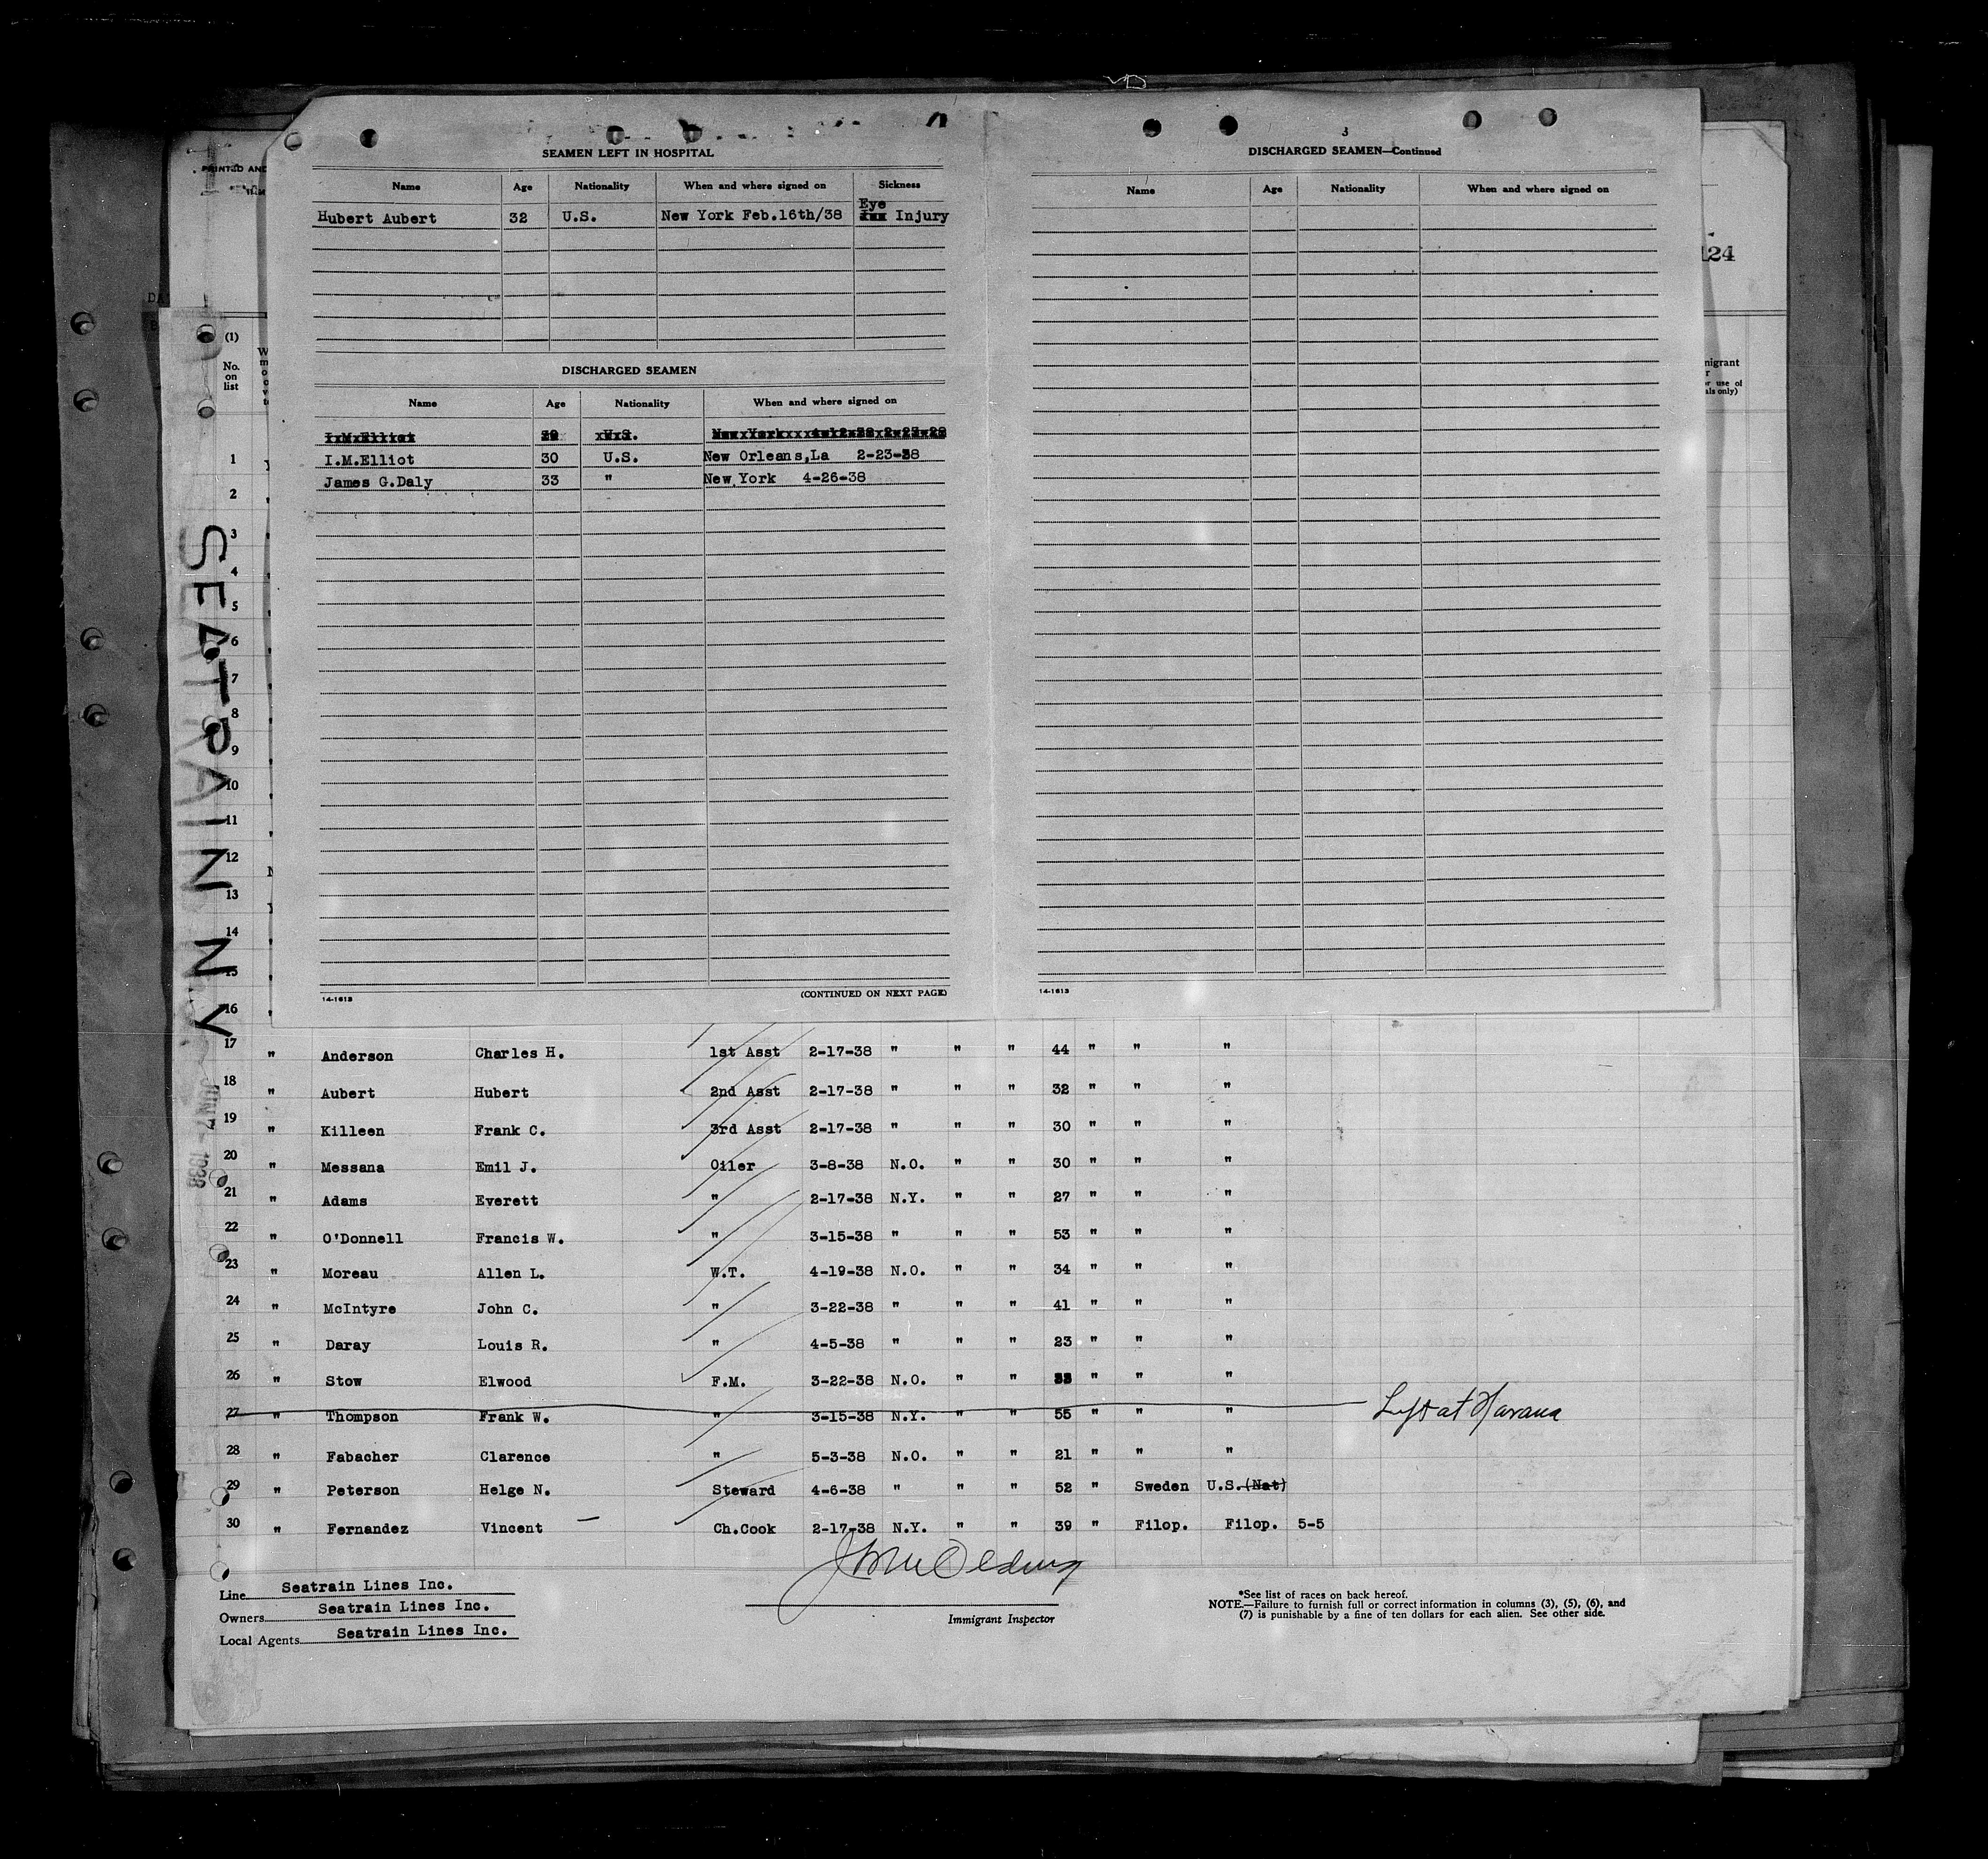 3
SEAMEN LEFT IN HOSPITAL
Name Age Nationality When and where signed on Sickness
Eye
Hubert Aubert 32 U.S. New York Feb.16th/38 Injury
DISCHARGED SEAMEN
Name Age Nationality When and where signed on
I.M.Elliot 30 U.S. New Orleans,La 2-23-38
James G.Daly 33 " New York 4-26-38
14-1613 (CONTINUED ON NEXT PAGE)
DISCHARGED SEAMEN—Continued
Name Age Nationality When and where signed on
14-1613
PRINTED AND
124
(1)
No.
on
list
1
2
3
4
5
6
7
8
9
10
11
12
13
14
15
16
SEATRAIN N Y
JUN 7 - 1938
17 " Anderson Charles H. 1st Asst 2-17-38 " " " 44 " " "
18 " Aubert Hubert 2nd Asst 2-17-38 " " " 32 " " "
19 " Killeen Frank C. 3rd Asst 2-17-38 " " " 30 " " "
20 " Messana Emil J. Oiler 3-8-38 N.O. " " 30 " " "
21 " Adams Everett " 2-17-38 N.Y. " " 27 " " "
22 " O'Donnell Francis W. " 3-15-38 " " " 53 " " "
23 " Moreau Allen L. W.T. 4-19-38 N.O. " " 34 " " "
24 " McIntyre John C. " 3-22-38 " " " 41 " " "
25 " Daray Louis R. " 4-5-38 " " " 23 " " "
26 " Stow Elwood F.M. 3-22-38 N.O. " " " " "
27 " Thompson Frank W. " 3-15-38 N.Y. " " 55 " " " Left at Havana
28 " Fabacher Clarence " 5-3-38 N.O. " " 21 " " "
29 " Peterson Helge N. Steward 4-6-38 " " " 52 " Sweden U.S.(Nat)
30 " Fernandez Vincent — Ch.Cook 2-17-38 N.Y. " " 39 " Filop. Filop. 5-5
Line Seatrain Lines Inc.
Owners Seatrain Lines Inc.
Local Agents Seatrain Lines Inc.
Immigrant Inspector
*See list of races on back hereof.
NOTE.—Failure to furnish full or correct information in columns (3), (5), (6), and
(7) is punishable by a fine of ten dollars for each alien. See other side.